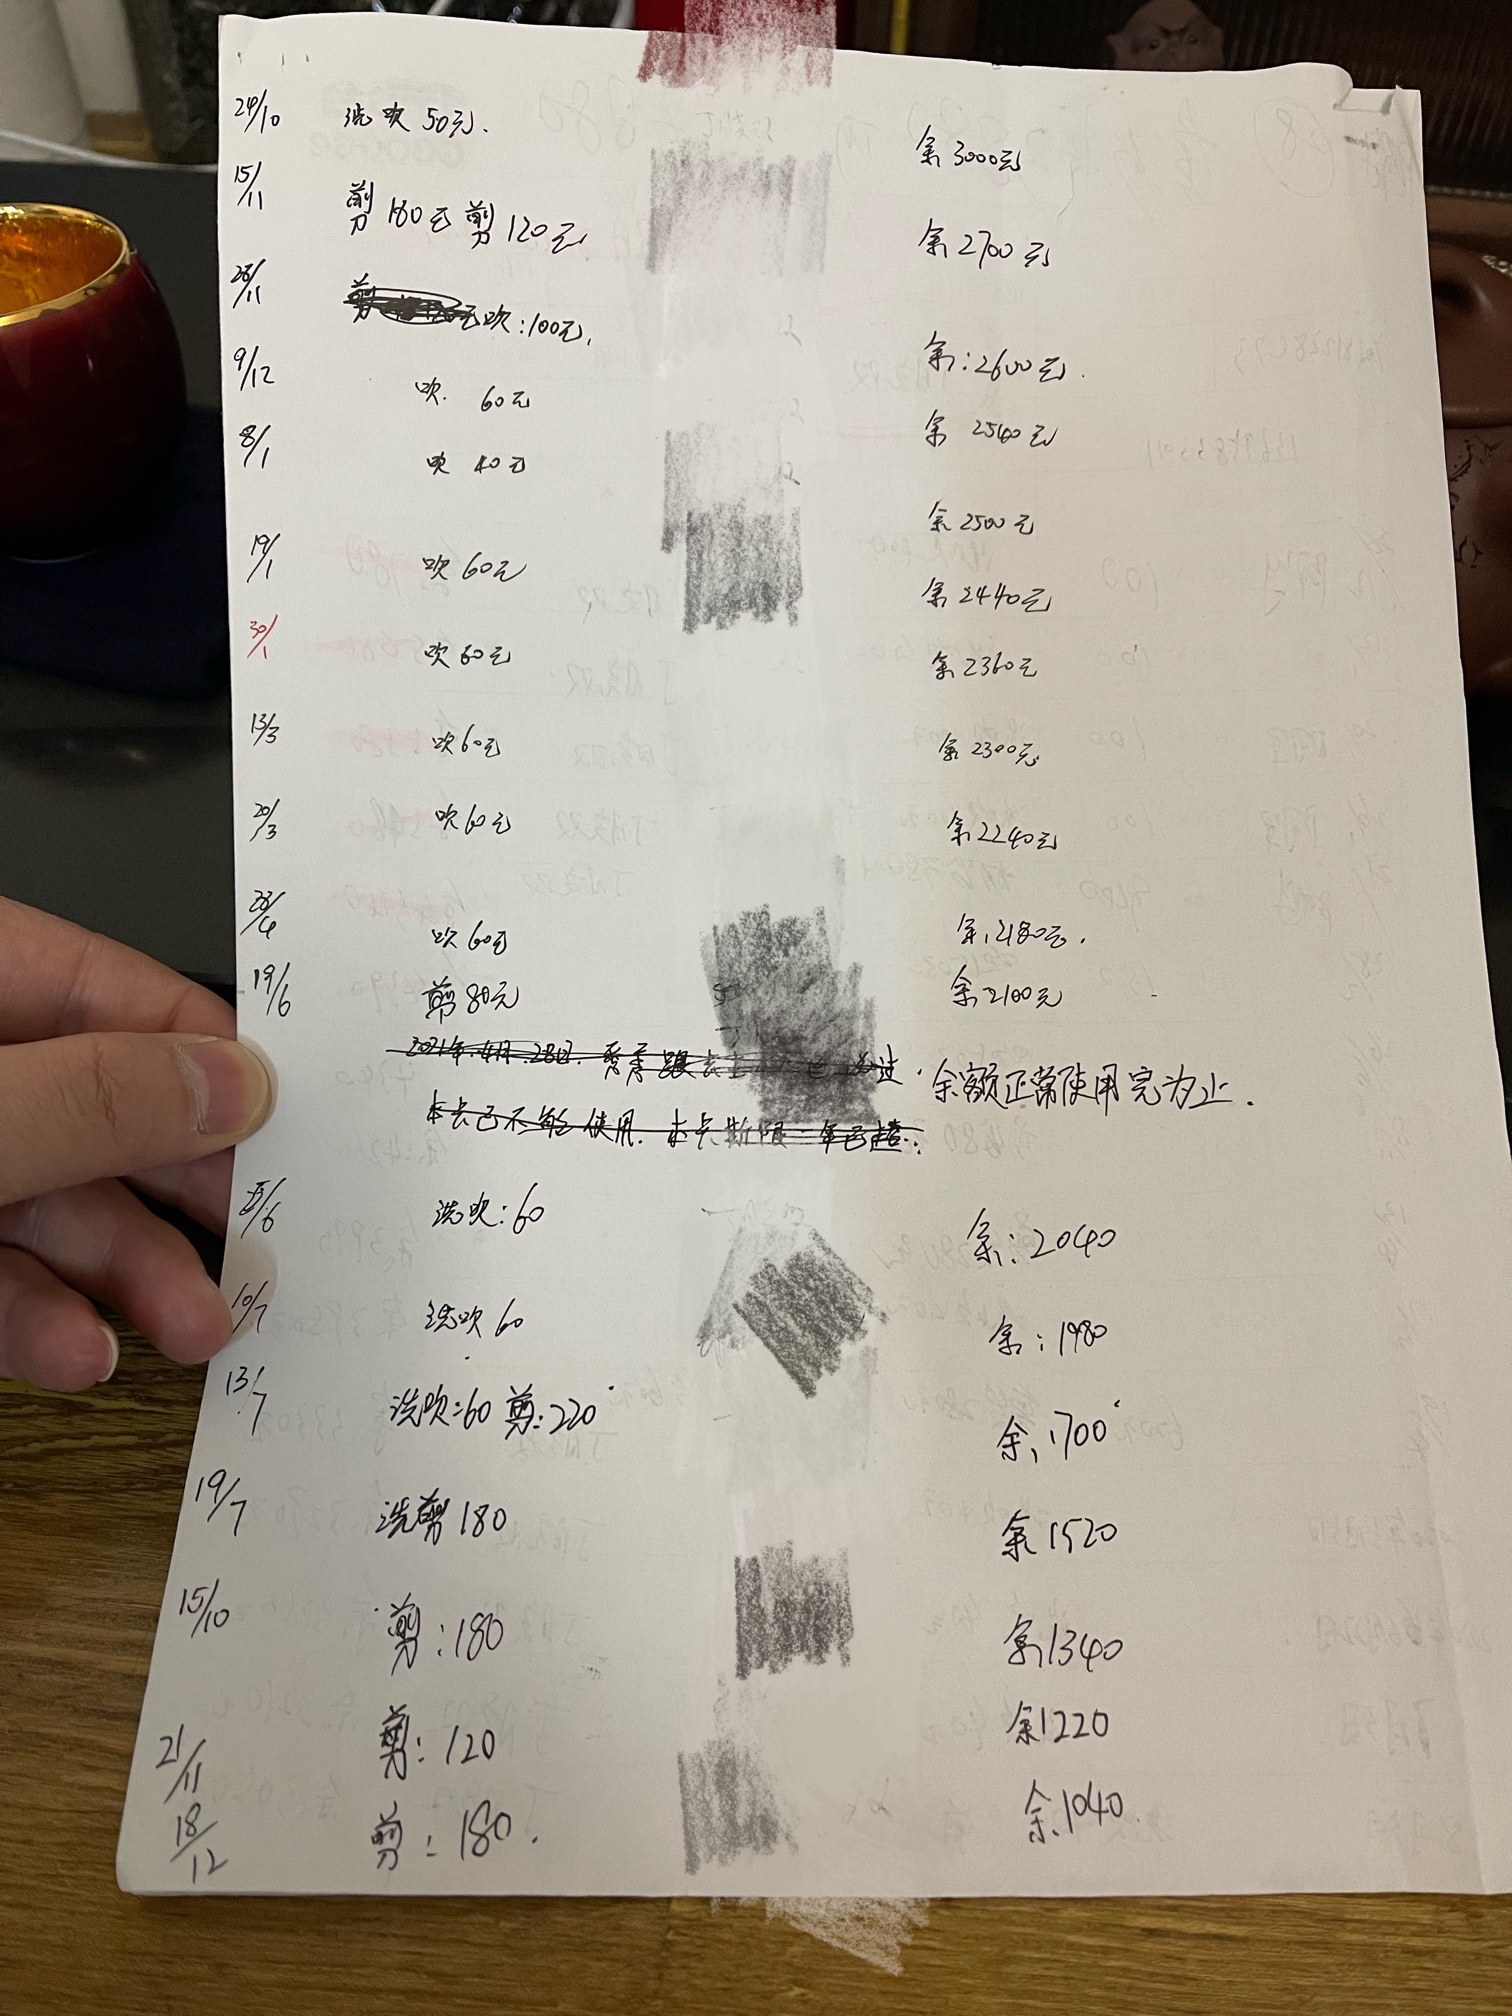 24/10 洗吹 50元. 余 3000元
15/11 剪 180元 剪 120元 余 2700元
28/11 吹:100元. 余:2600元.
9/12 吹. 60元 余 2540元
8/1 吹 40元 余 2500元
19/1 吹 60元 余 2440元
30/1 吹 80元 余 2360元
13/3 吹 60元 余 2300元
20/3 吹 60元 余 2240元
吹 60元 余 2180元.
19/6 剪 80元 余 2100元
2021年.4月.28日. 余额正常使用完为止.
本卡已不能使用. 本卡期限一年已
洗吹:60 余:2040
10/7 洗吹 60 余:1980
13/7 洗吹:60 剪:220 余 1700
19/7 洗剪 180 余 1520
15/10 剪:180 余 1340
21/11 剪:120 余 1220
18/12 剪:180. 余 1040.